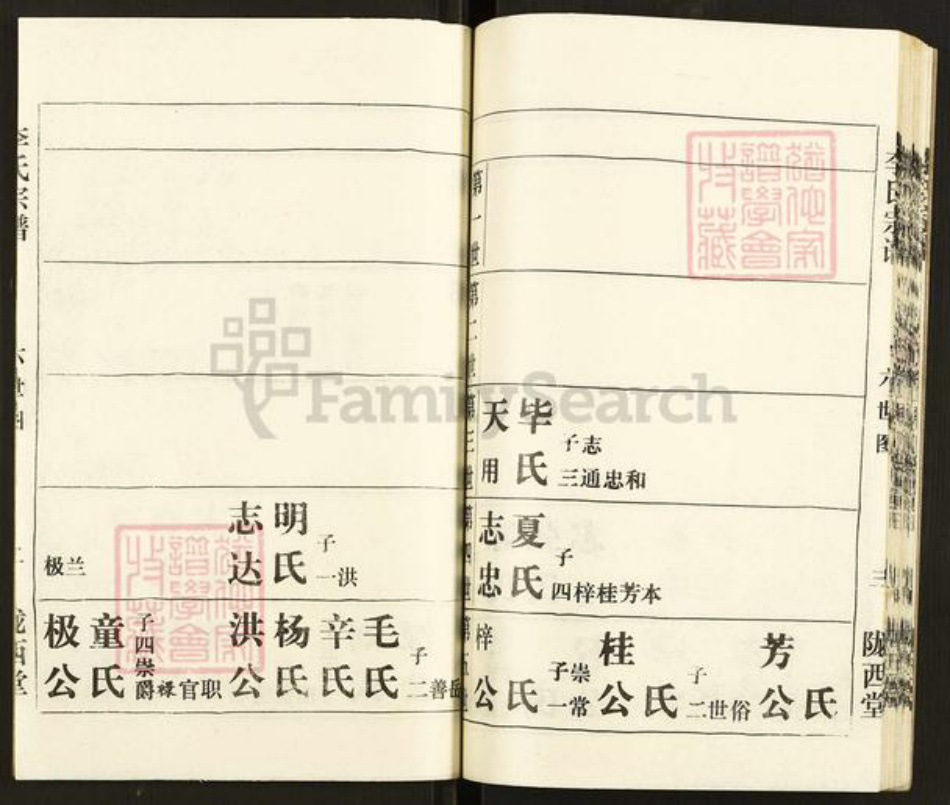 李氏宗谱
六世图
三
陇西堂
第一世
第二世
第三世
天用
毕氏
子三
志通忠和
第四世
志忠
夏氏
子四
梓桂芳本
第五世
梓公
氏
子一
崇常
桂公
氏
子二
世俗
芳公
氏
李氏宗谱
六世图
二
陇西堂
极兰
志达
明氏
子一
洪
极公
童氏
子四
崇爵禄官职
洪公
杨氏
辛氏
毛氏
子二
善岳
FamilySearch